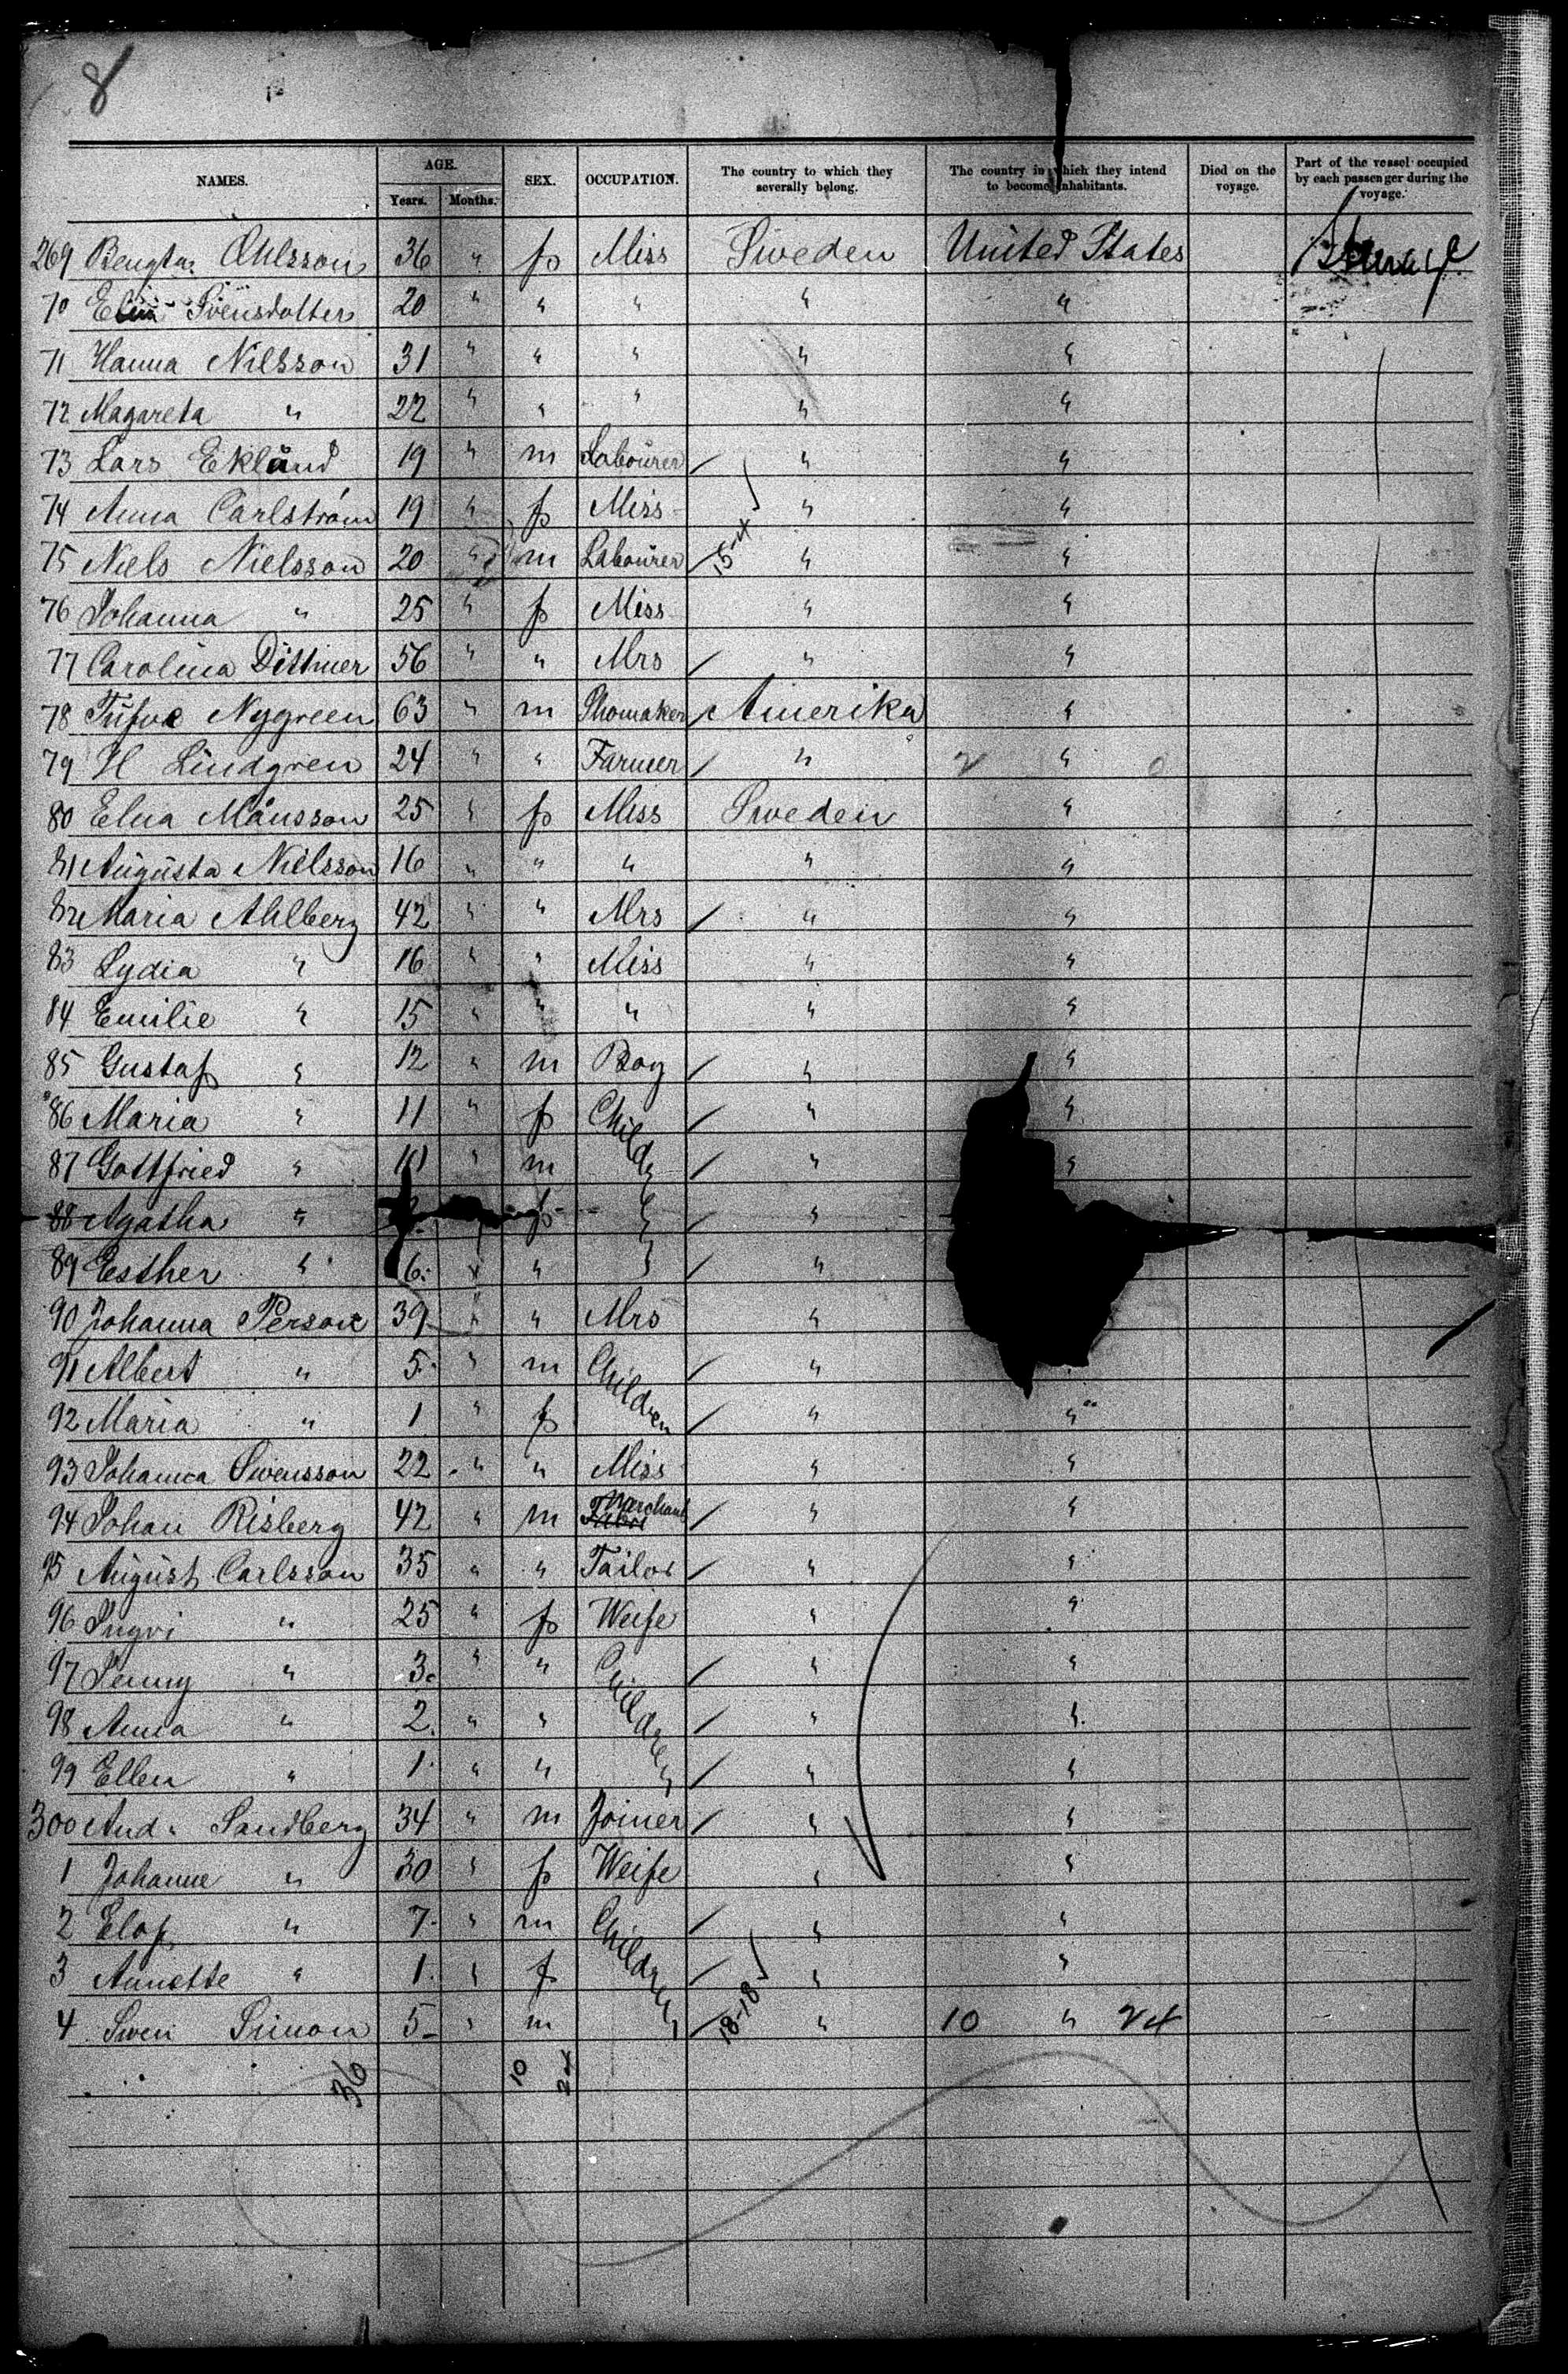 8
NAMES. AGE. Years. Months. SEX. OCCUPATION. The country to which they severally belong. The country in which they intend to become inhabitants. Died on the voyage. Part of the vessel occupied by each passenger during the voyage.
269 Bengta Öhlsson 36 " f Miss Sweden United States Steerage
70 Elin Svensdotter 20 " " " " "
71 Hanna Nilsson 31 " " " " "
72 Magareta " 22 " " " " "
73 Lars Eklund 19 " m Labourer " "
74 Anna Carlström 19 " f Miss " "
75 Niels Nielsson 20 " m Labourer 15-4 " "
76 Johanna " 25 " f Miss " "
77 Carolina Dittmer 56 " " Mrs " "
78 Nygreen 63 " m Shomaker Amerika "
79 H Lindgren 24 " " Farmer " 2 " 0
80 Elna Månsson 25 " f Miss Sweden "
81 Augusta Nilsson 16 " " " " "
82 Maria Ahlberg 42 " " Mrs " "
83 Lydia " 16 " " Miss " "
84 Emilie " 15 " " " " "
85 Gustaf " 12 " m Boy " "
86 Maria " 11 " f Child " "
87 Gottfried " 10 " m " "
88 Agatha " f "
89 Esther " 6 " " "
90 Johanna Person 39 " " Mrs "
91 Albert " 5 " m Children "
92 Maria " 1 " f " "
93 Johanna Swensson 22 " " Miss " "
94 Johan Risberg 42 " m Merchant " "
95 August Carlsson 35 " " Tailor " "
96 Ingri " 25 " f Weife " "
97 Jenny " 3 " " Children " "
98 Anna " 2 " " " "
99 Ellen " 1 " " " "
300 And. Sandberg 34 " m Joiner " "
1 Johanne " 30 " f Weife " "
2 Elof " 7 " m Children " "
3 Annette " 1 " f " "
4 Sven Simon 5 " m 18-18 " 10 " 24
36 10 24